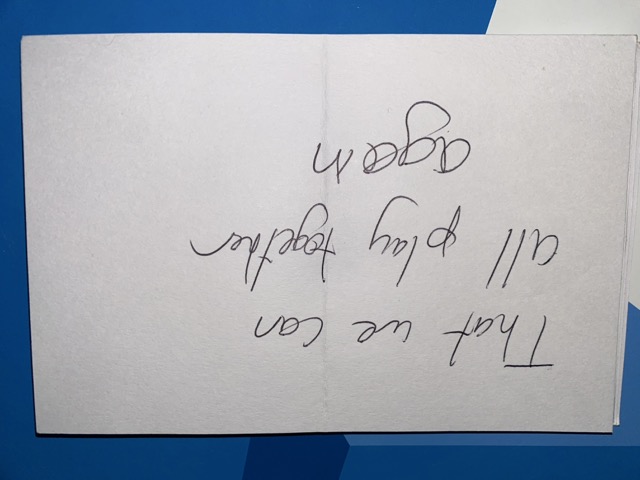 That we can
all play together
again